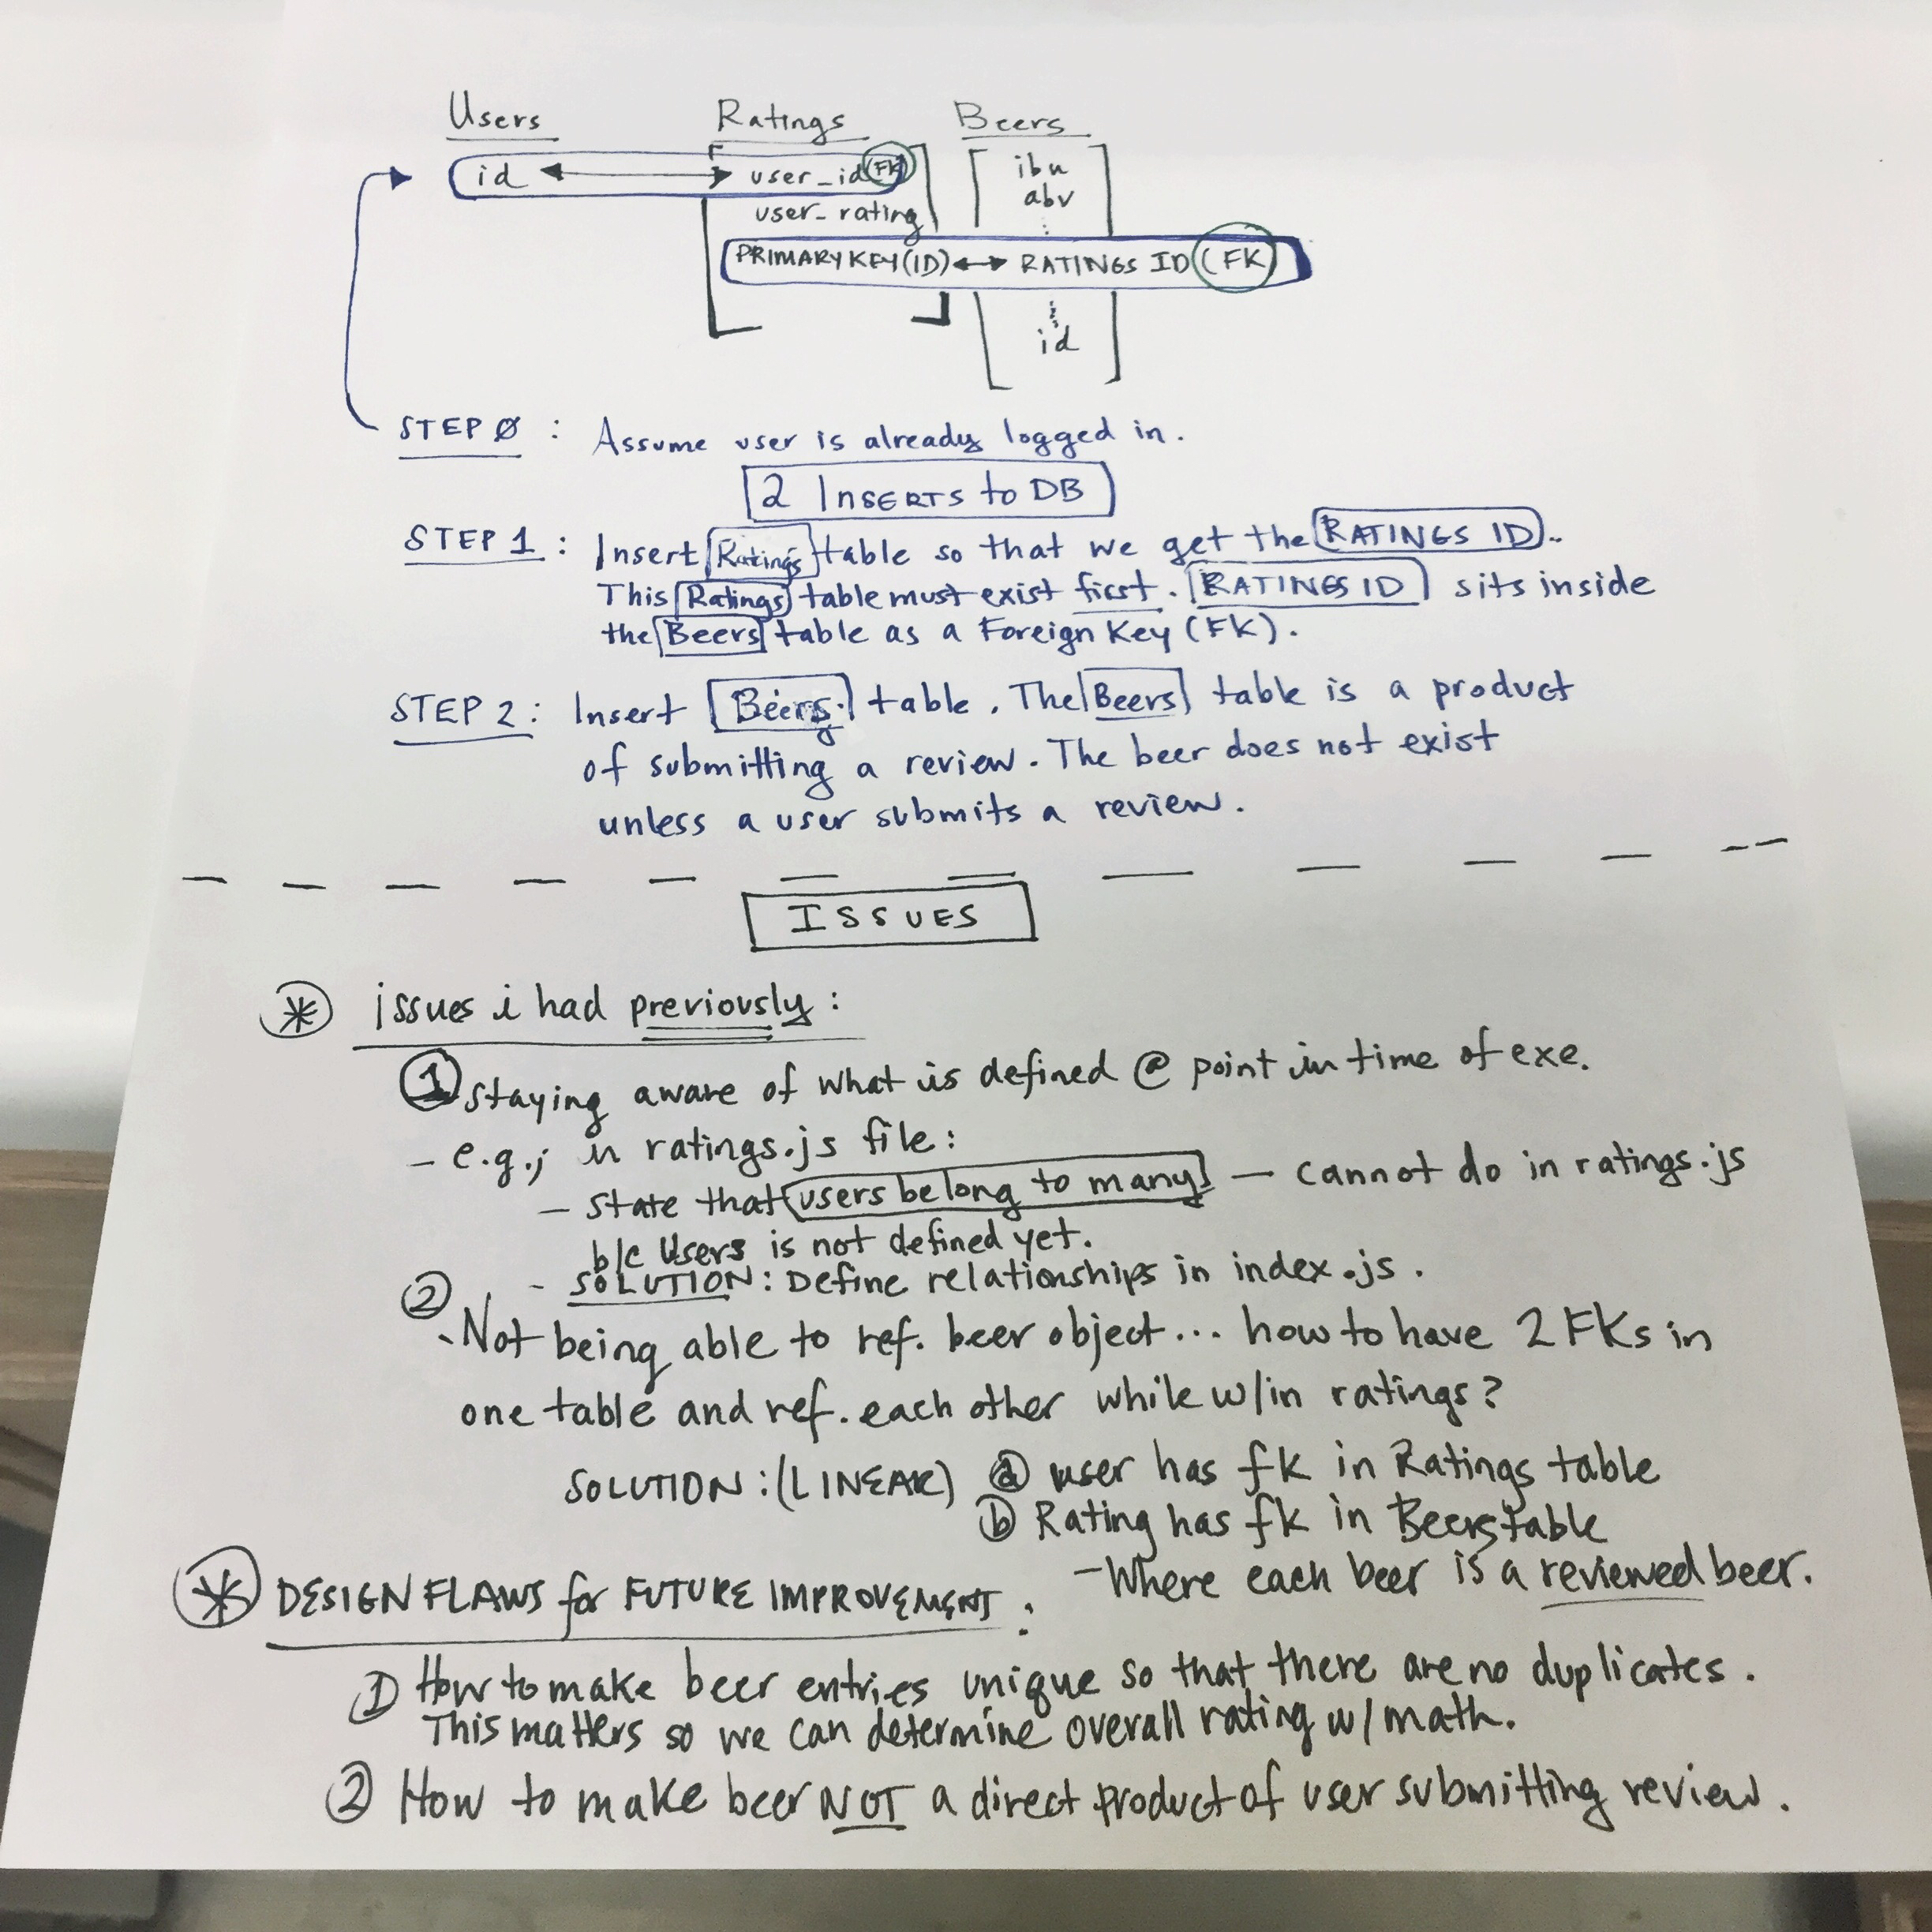 Users Ratings Beers
id user_id (FK) ibu
user_rating abv
PRIMARY KEY (ID) RATINGS ID (FK)
id
STEP 0 : Assume user is already logged in.
2 INSERTS to DB
STEP 1 : Insert Ratings table so that we get the RATINGS ID.
This Ratings table must exist first. RATINGS ID sits inside
the Beers table as a Foreign Key (FK).
STEP 2 : Insert Beers table. The Beers table is a product
of submitting a review. The beer does not exist
unless a user submits a review.
ISSUES
* issues i had previously :
1 Staying aware of what is defined @ point in time of exe.
- e.g.; in ratings.js file :
- state that users belong to many - cannot do in ratings.js
b/c Users is not defined yet.
- SOLUTION : Define relationships in index.js.
2 - Not being able to ref. beer object... how to have 2 FKs in
one table and ref. each other while w/in ratings?
SOLUTION : (LINEAR) a user has fk in Ratings table
b Rating has fk in Beers table
- Where each beer is a reviewed beer.
* DESIGN FLAWS for FUTURE IMPROVEMENT :
1 How to make beer entries unique so that there are no duplicates.
This matters so we can determine overall rating w/ math.
2 How to make beer NOT a direct product of user submitting review.